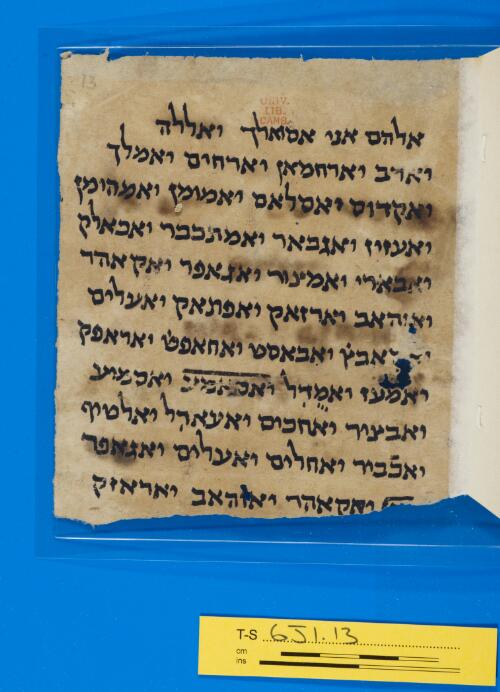 13
UNIV.
LIB.
CAMB.
אלהם אני אסואלך ואללה
יארב יארחמאן יארחים יאמלך
יאקדוס יאסלאם יאמומן יאמהימן
יאעזיז יאגבאר יאמתכבר יאכאלק
יאבארי יאמצור יאגאפר יאקאהר
יאוהאב יארזאק יאפתאק יאעלים
יאבאסט יאחאפט יאראפק
יאמעז יאמדל יאסמיע
יאבציר יאחכים יאעאדל יאלטיף
יאכביר יאחלים יאעלים יאגאפר
יאקאהר יאוהאב יאראזק
T-S 6J1.13
cm
ins